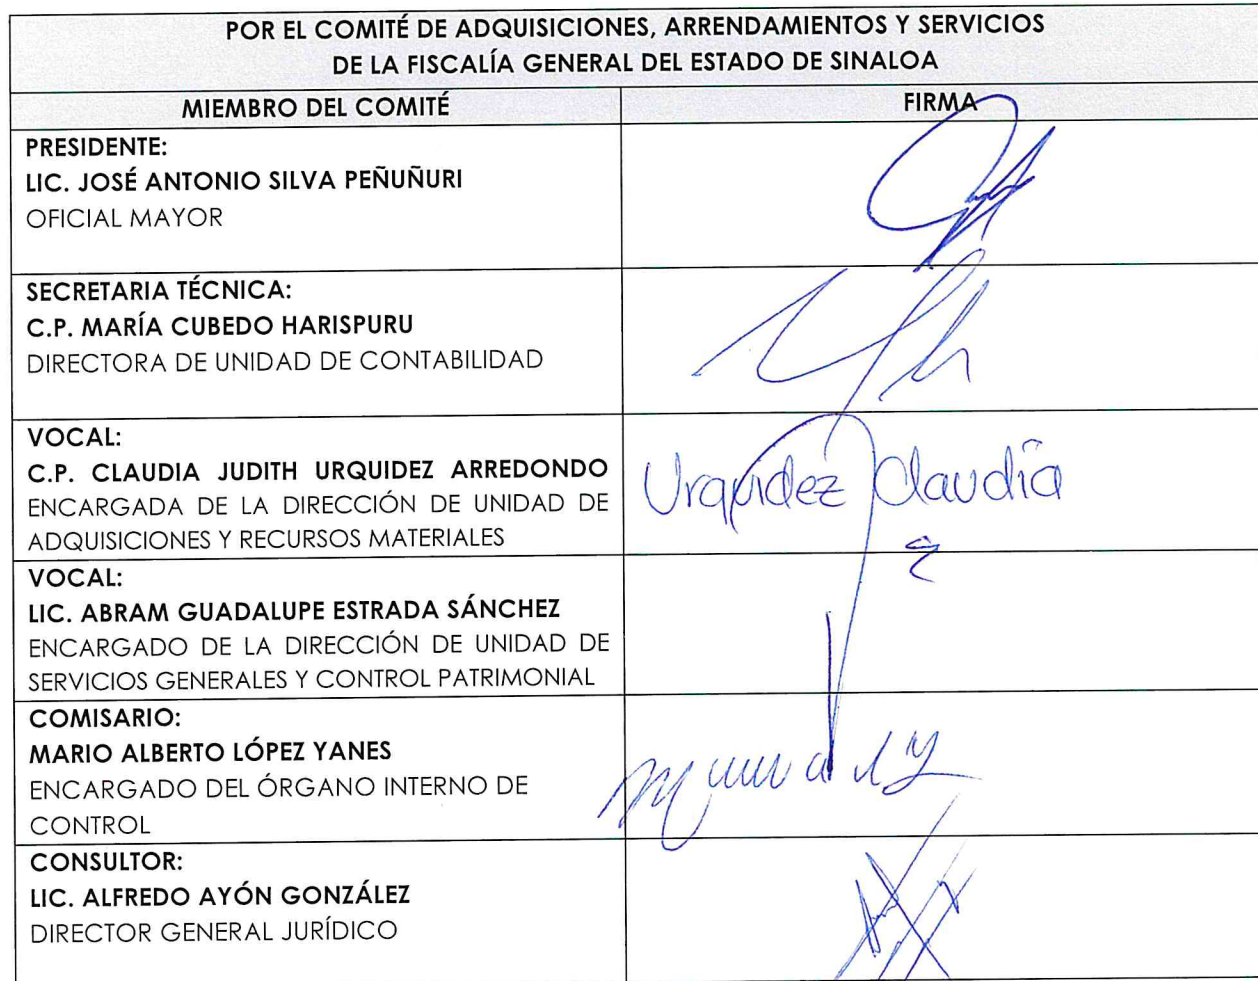 POR EL COMITÉ DE ADQUISICIONES, ARRENDAMIENTOS Y SERVICIOS
DE LA FISCALÍA GENERAL DEL ESTADO DE SINALOA
MIEMBRO DEL COMITÉ FIRMA
PRESIDENTE:
LIC. JOSÉ ANTONIO SILVA PEÑUÑURI
OFICIAL MAYOR
SECRETARIA TÉCNICA:
C.P. MARÍA CUBEDO HARISPURU
DIRECTORA DE UNIDAD DE CONTABILIDAD
VOCAL:
C.P. CLAUDIA JUDITH URQUIDEZ ARREDONDO
ENCARGADA DE LA DIRECCIÓN DE UNIDAD DE
ADQUISICIONES Y RECURSOS MATERIALES
Urquidez Claudia
VOCAL:
LIC. ABRAM GUADALUPE ESTRADA SÁNCHEZ
ENCARGADO DE LA DIRECCIÓN DE UNIDAD DE
SERVICIOS GENERALES Y CONTROL PATRIMONIAL
COMISARIO:
MARIO ALBERTO LÓPEZ YANES
ENCARGADO DEL ÓRGANO INTERNO DE
CONTROL
CONSULTOR:
LIC. ALFREDO AYÓN GONZÁLEZ
DIRECTOR GENERAL JURÍDICO